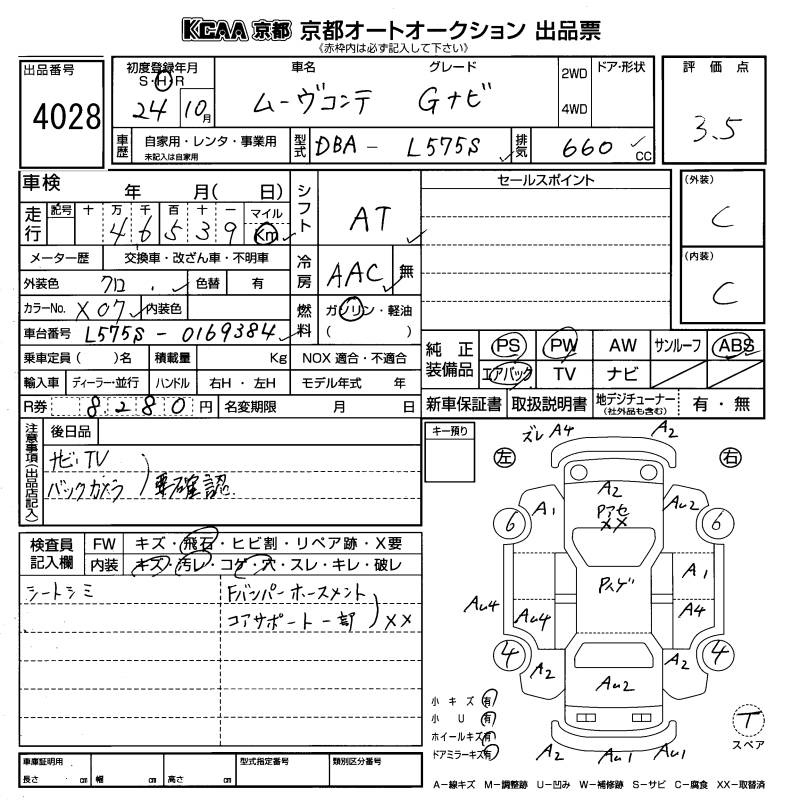 KCAA 京都 京都オートオークション 出品票
《赤枠内は必ず記入して下さい》
出品番号
4028
初度登録年月
S・H・R
24 10月
車名
ムーヴコンテ
グレード
Gナビ
2WD
4WD
ドア・形状
評価点
3.5
車歴
自家用・レンタ・事業用
未記入は自家用
型式
DBA - L575S
排気
660 CC
車検 年 月( 日)
走行
記号 十 万 千 百 十 一 マイル
4 6 5 3 9 Km
シフト
AT
メーター歴 交換車・改ざん車・不明車
外装色 クロ 色替 有
冷房
AAC 無
カラーNo. X07 内装色
燃料
ガソリン・軽油
( )
車台番号 L575S - 0169384
乗車定員 ( )名 積載量 Kg NOX 適合・不適合
輸入車 ディーラー・並行 ハンドル 右H・左H モデル年式 年
R券 8280円 名変期限 月 日
セールスポイント
(外装)
C
(内装)
C
純正装備品
PS PW AW サンルーフ ABS
エアバック TV ナビ
新車保証書 取扱説明書 地デジチューナー (社外品も含む) 有・無
注意事項(出品店記入)
後日品
ナビ・TV
バックカメラ
要確認
キー預り
ズレ A4
A2
左
右
A2
Pアセ
XX
A1
Au2
6
6
Pハゲ
A1
Au4
Au4
A4
4
4
A2
A2
Au2
A2 Au1 Au1
小キズ 有
小U 有
ホイールキズ 有
ドアミラーキズ 有
T
スペア
検査員記入欄
FW キズ・飛石・ヒビ割・リペア跡・X要
内装 キズ・汚レ・コゲ・穴・スレ・キレ・破レ
シートシミ
Fバンパーホースメント
コアサポート一部
XX
車庫証明用
長さ cm 幅 cm 高さ cm
型式指定番号
類別区分番号
A−線キズ M−調整跡 U−凹み W−補修跡 S−サビ C−腐食 XX−取替済